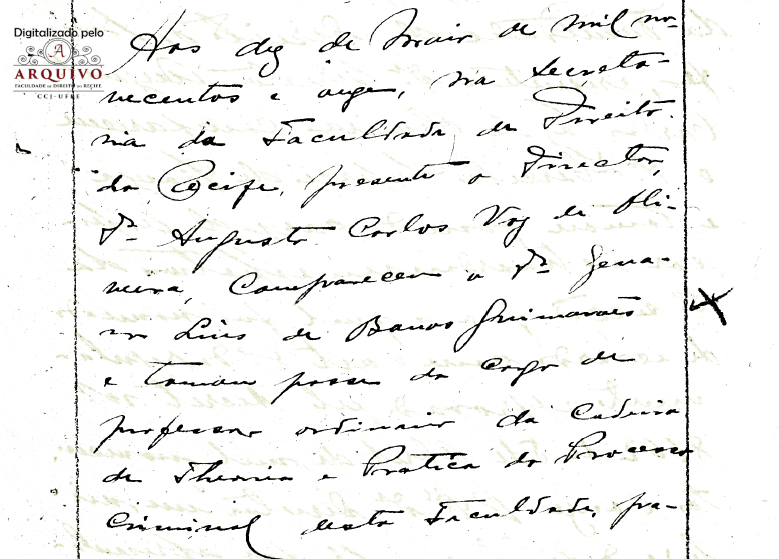 Digitalizado pelo
A
ARQUIVO
FACULDADE DE DIREITO DO RECIFE
CCJ-UFPE
Aos dez de Maio de mil no-
vecentos e onze, na Secreta-
ria da Faculdade de Direito
do Recife, presente o Director,
Dr. Augusto Carlos Vaz de Oli-
veira, compareceu o Dr. Gena-
ro Lins de Barros Guimarães
e tomou posse do cargo de
professor ordinario da Cadeira
de Theoria e Pratica do Processo
Criminal desta Faculdade, pa-